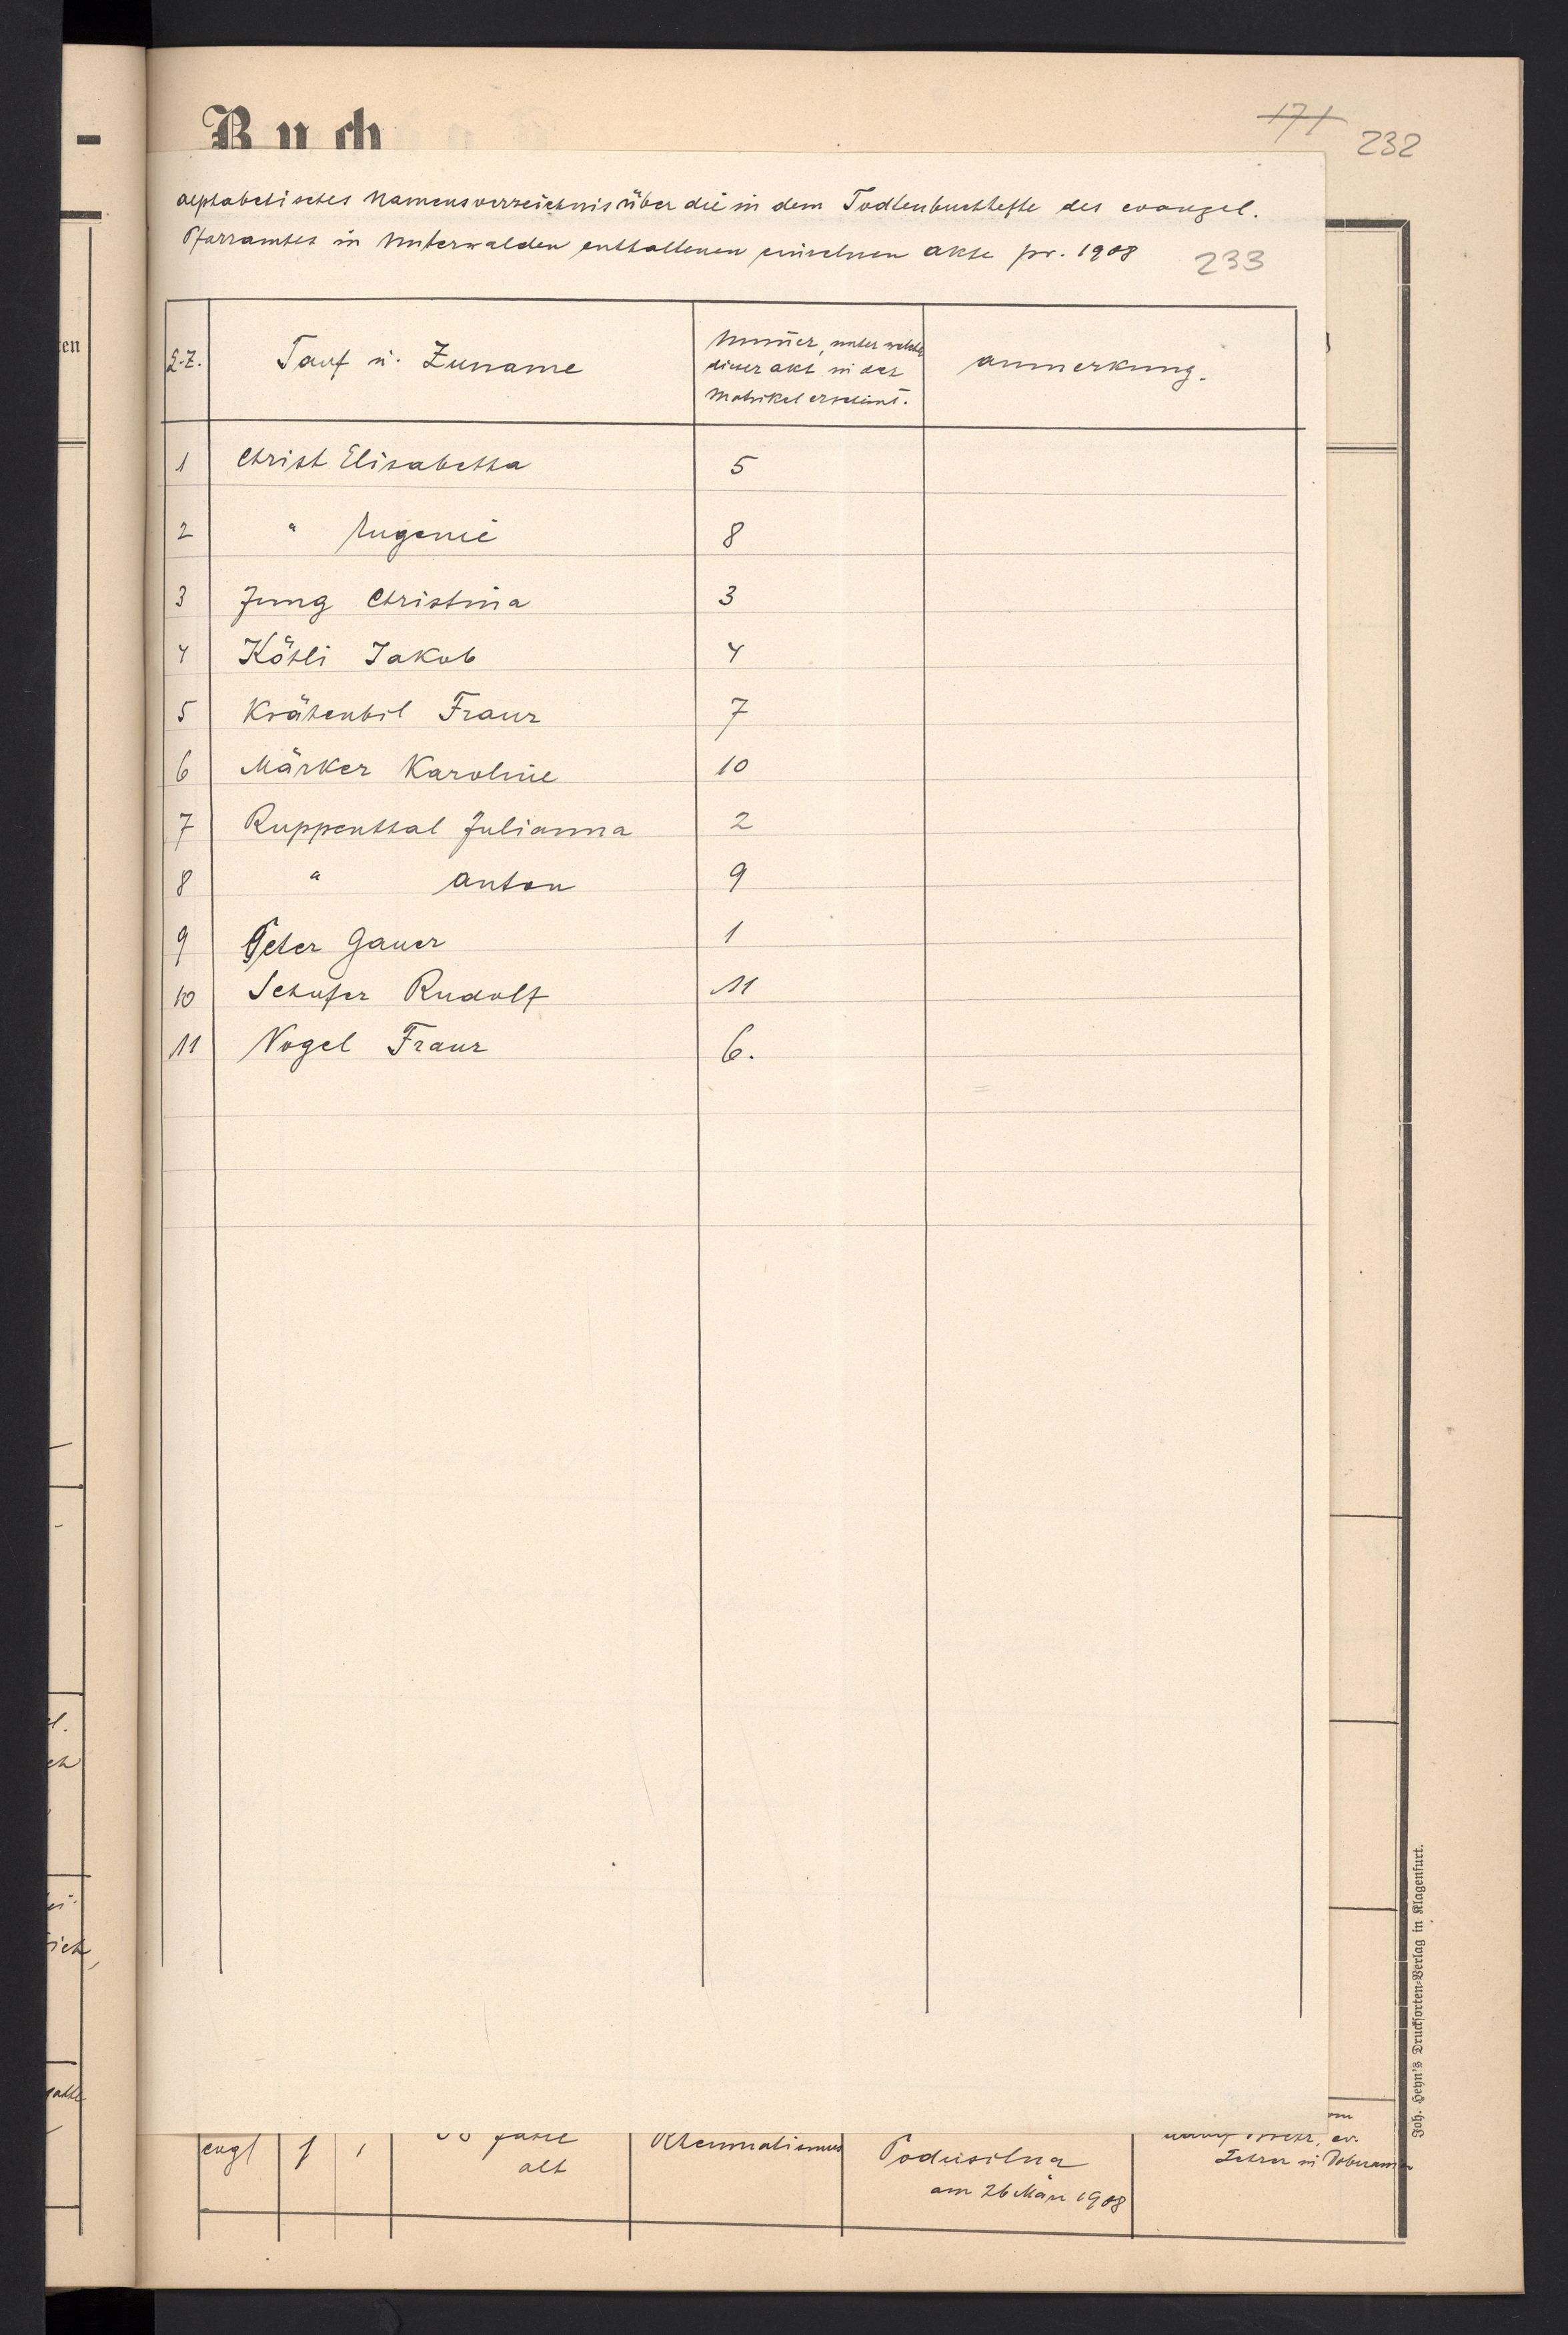 Buch
171 232
alphabetisches Namensverzeichnis über die in dem Todtenbuchhefte des evangel.
Pfarramtes in Unterwalden enthaltenen einzelnen akte pr. 1908
233
L.-Z. Tauf u. Zuname Num̄er, unter welcher dieser akt in der Matrikel erscheint. anmerkung.
1 Christ Elisabetha 5
2 " Eugenie 8
3 Jung Christina 3
4 Köhli Jakob 4
5 Krähenbil Franz 7
6 Märker Karoline 10
7 Ruppenthal Julianna 2
8 " anton 9
9 Peter Gauer 1
10 Schafer Rudolf 11
11 Vogel Franz 6.
evgl 1 1 Jahre alt Rheumatismus Podusilna am 26 März 1908 ev. Lehrer in
en
Joh. Heyn's Drucksorten-Verlag in Klagenfurt.